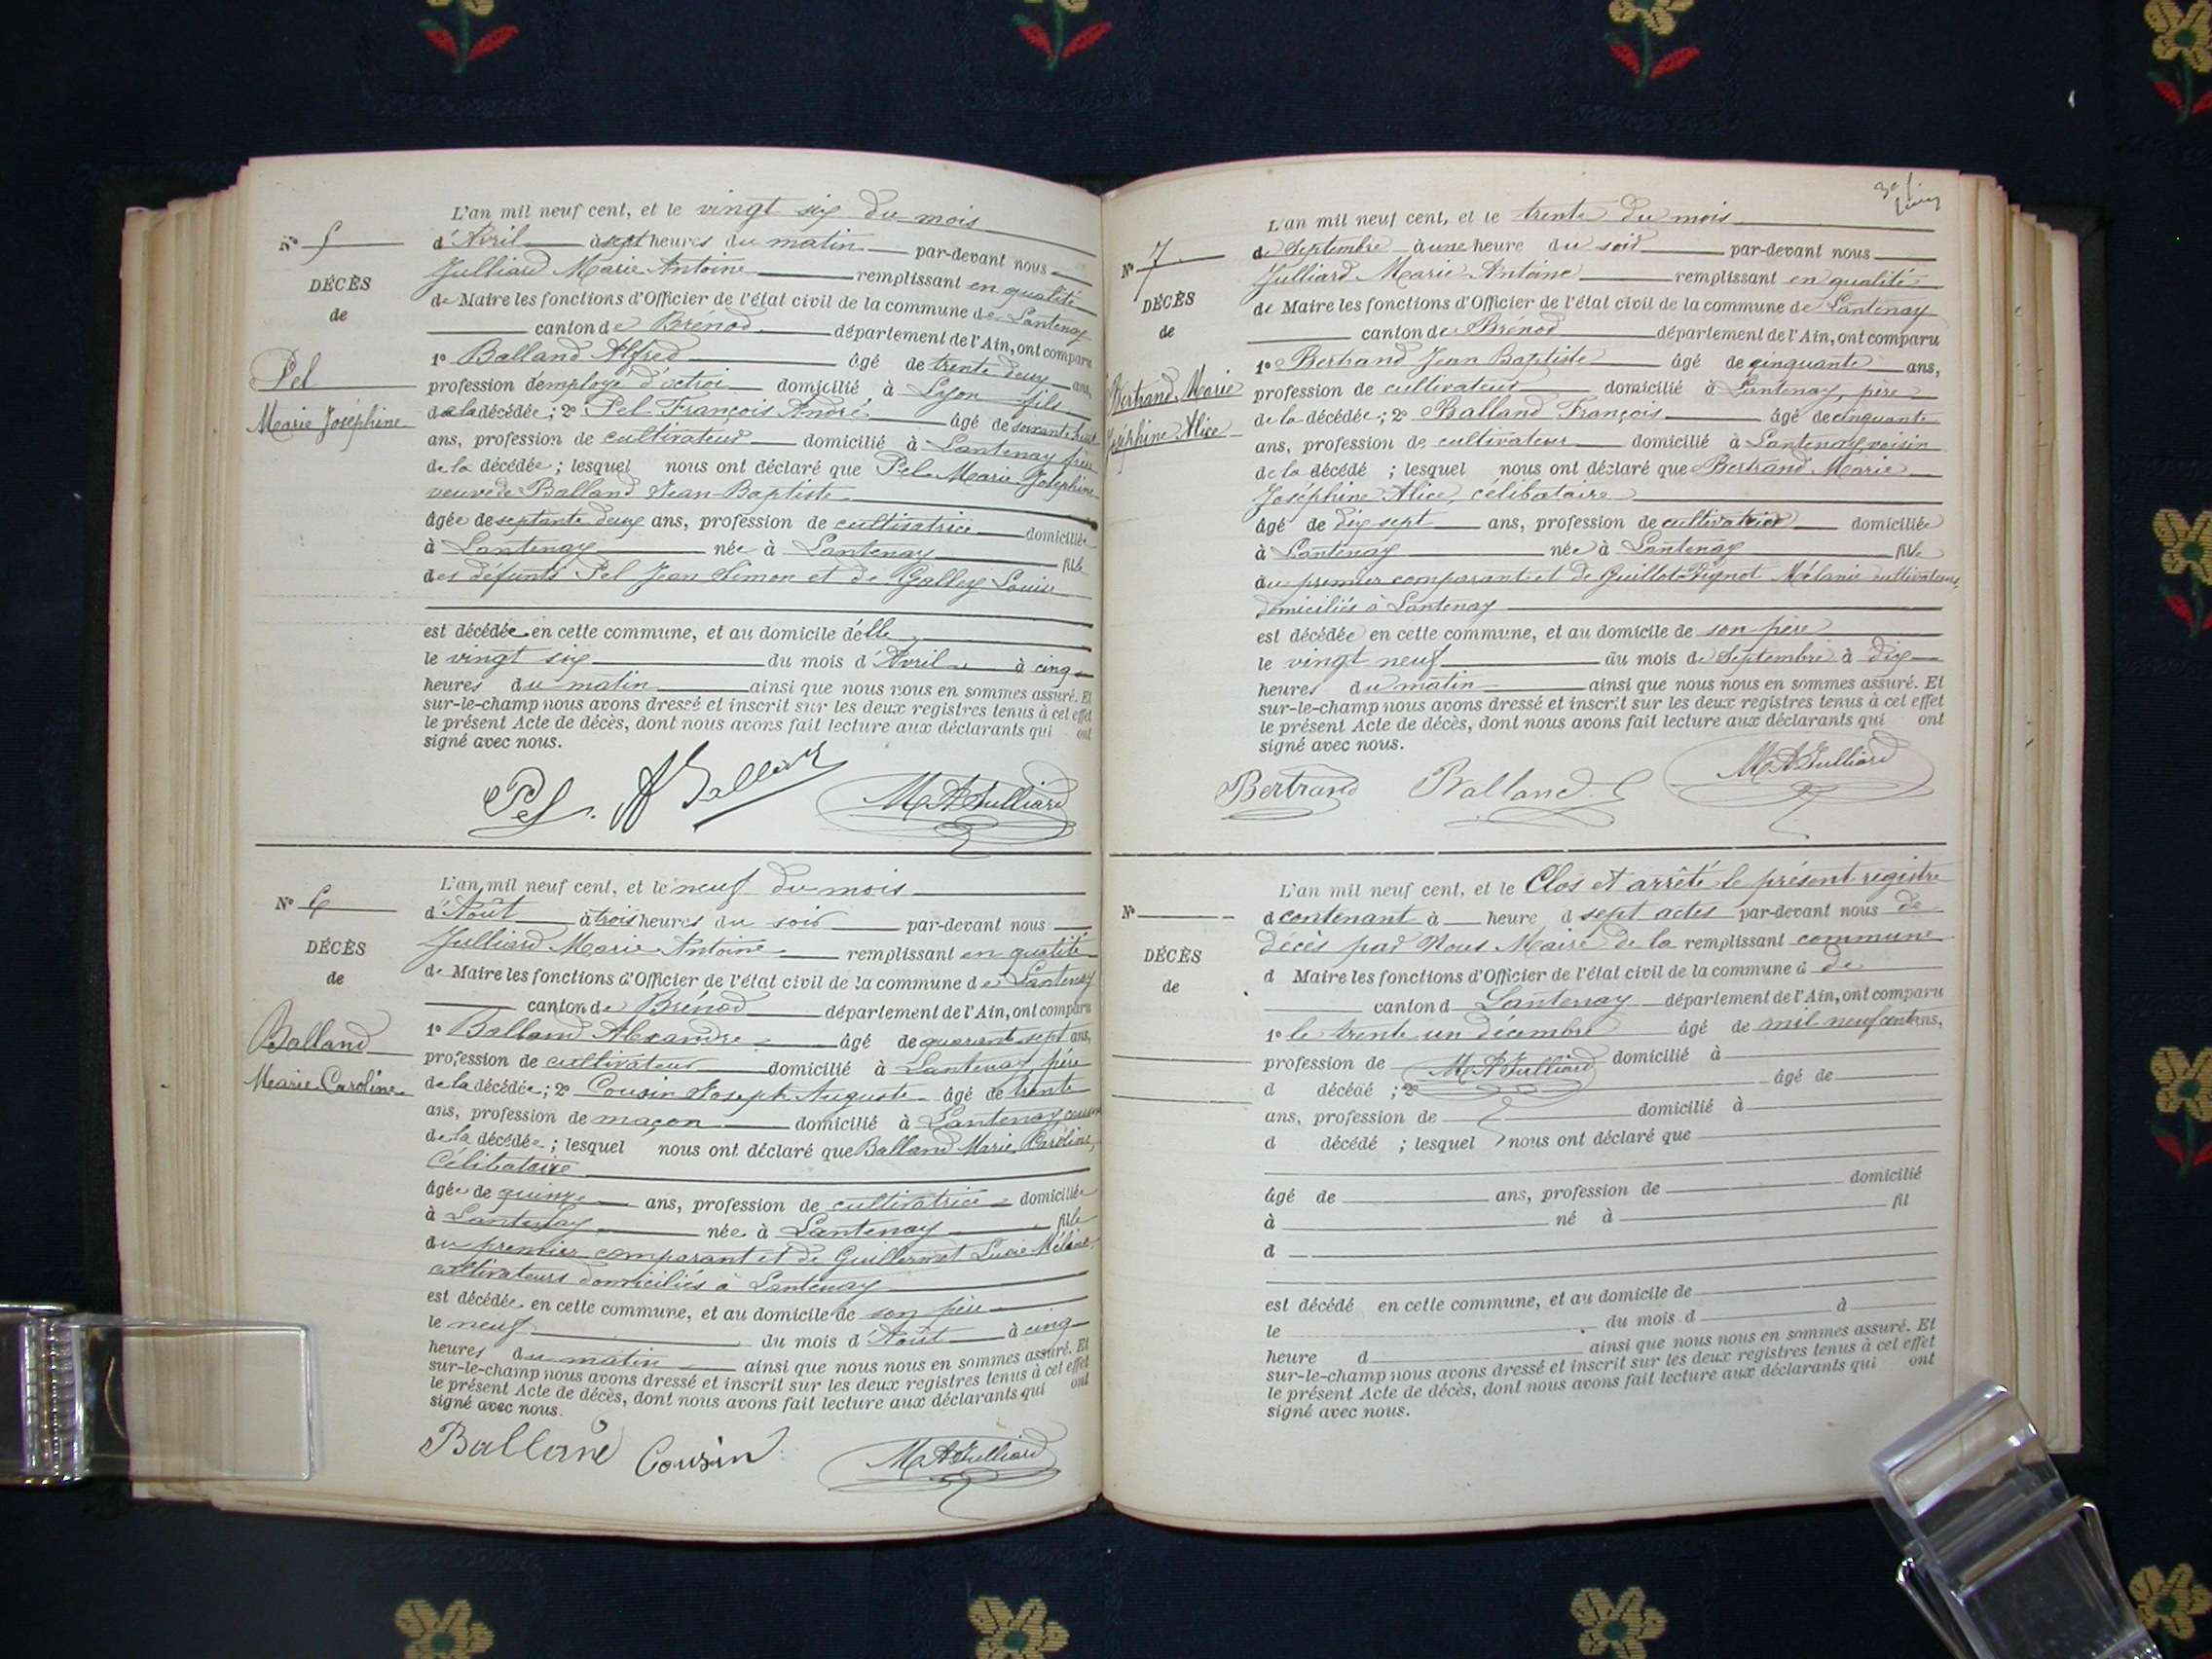 L'an mil neuf cent, et le vingt six du mois
N° 5
d'Avril à sept heures du matin par-devant nous
Julliard Marie Antoine remplissant en qualité
DÉCÈS
de Maire les fonctions d'Officier de l'état civil de la commune de Lantenay
de
canton de Brénod département de l'Ain, ont comparu
1° Balland Alfred âgé de trente deux ans,
Pel
profession d'employé d'octroi domicilié à Lyon fils
Marie Joséphine
de la décédée ; 2° Pel François André âgé de soixante huit
ans, profession de cultivateur domicilié à Lantenay frère
de la décédée ; lesquel nous ont déclaré que Pel Marie Joséphine
veuve de Balland Jean-Baptiste
âgée de septante deux ans, profession de cultivatrice domiciliée
à Lantenay née à Lantenay fille
des défunts Pel Jean Simon et de Galley Louise
est décédée en cette commune, et au domicile d'elle
le vingt six du mois d'Avril à cinq
heures du matin ainsi que nous nous en sommes assuré. Et
sur-le-champ nous avons dressé et inscrit sur les deux registres tenus à cet effet
le présent Acte de décès, dont nous avons fait lecture aux déclarants qui ont
signé avec nous.
Pel. A Balland M A Julliard
L'an mil neuf cent, et le neuf du mois
N° 6
d'Août à trois heures du soir par-devant nous
Julliard Marie Antoine remplissant en qualité
DÉCÈS
de Maire les fonctions d'Officier de l'état civil de la commune de Lantenay
de
canton de Brénod département de l'Ain, ont comparu
1° Balland Alexandre âgé de quarante sept ans,
Balland
profession de cultivateur domicilié à Lantenay, père
Marie Caroline
de la décédée ; 2° Cousin Joseph Auguste âgé de trente
ans, profession de maçon domicilié à Lantenay, cousin
de la décédée ; lesquel nous ont déclaré que Balland Marie Caroline,
célibataire
âgée de quinze ans, profession de cultivatrice domiciliée
à Lantenay née à Lantenay fille
du premier comparant et de Guillermet Lucie Mélanie
cultivateurs domiciliés à Lantenay
est décédée en cette commune, et au domicile de son père
le neuf du mois d'Août à cinq
heures du matin ainsi que nous nous en sommes assuré. Et
sur-le-champ nous avons dressé et inscrit sur les deux registres tenus à cet effet
le présent Acte de décès, dont nous avons fait lecture aux déclarants qui ont
signé avec nous.
Balland Cousin M A Julliard
L'an mil neuf cent, et le trente du mois
N° 7
de Septembre à une heure du soir par-devant nous
Julliard Marie Antoine remplissant en qualité
DÉCÈS
de Maire les fonctions d'Officier de l'état civil de la commune de Lantenay
de
canton de Brénod département de l'Ain, ont comparu
1° Bertrand Jean Baptiste âgé de cinquante ans,
Bertrand Marie
profession de cultivateur domicilié à Lantenay, père
Joséphine Alice
de la décédée ; 2° Balland François âgé de cinquante
ans, profession de cultivateur domicilié à Lantenay, voisin
de la décédé ; lesquel nous ont déclaré que Bertrand Marie
Joséphine Alice, célibataire
âgé de dix sept ans, profession de cultivatrice domiciliée
à Lantenay née à Lantenay fille
du premier comparant et de Guillot Vignot Mélanie cultivateurs,
domiciliés à Lantenay
est décédée en cette commune, et au domicile de son père
le vingt neuf du mois de Septembre à dix
heures du matin ainsi que nous nous en sommes assuré. Et
sur-le-champ nous avons dressé et inscrit sur les deux registres tenus à cet effet
le présent Acte de décès, dont nous avons fait lecture aux déclarants qui ont
signé avec nous.
Bertrand Balland M A Julliard
L'an mil neuf cent, et le Clos et arrêté le présent registre
N°
d contenant à heure d sept actes par-devant nous de
décès par Nous Maire de la remplissant commune
DÉCÈS
d Maire les fonctions d'Officier de l'état civil de la commune d de
de
canton d Lantenay département de l'Ain, ont comparu
1° le trente un décembre âgé de mil neuf cent ans,
profession de M A Julliard domicilié à
d décédé ; 2° âgé de
ans, profession de domicilié à
d décédé ; lesquel nous ont déclaré que
âgé de ans, profession de domicilié
à né à fil
d
est décédé en cette commune, et au domicile de
le du mois d à
heure d ainsi que nous nous en sommes assuré. Et
sur-le-champ nous avons dressé et inscrit sur les deux registres tenus à cet effet
le présent Acte de décès, dont nous avons fait lecture aux déclarants qui ont
signé avec nous.